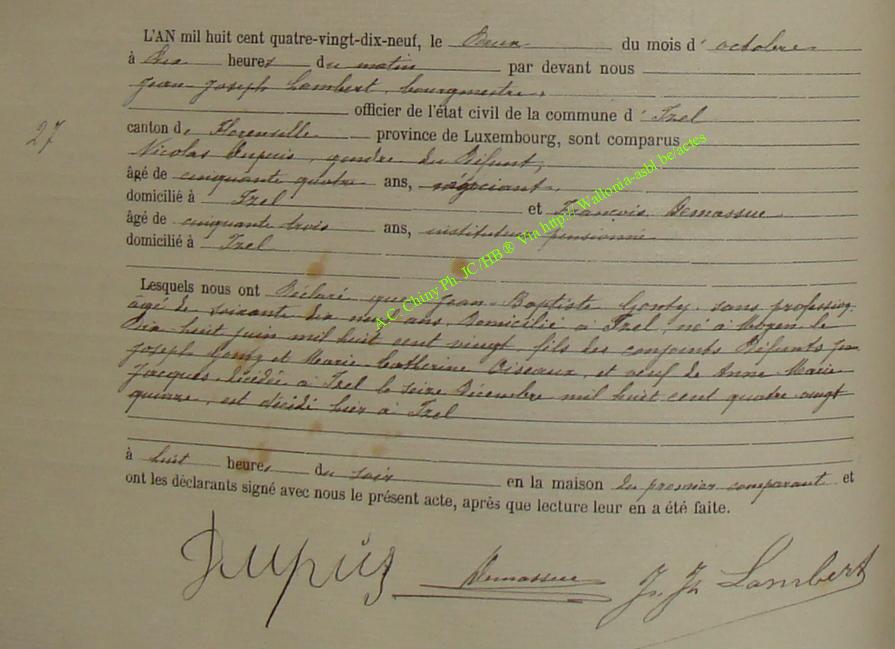 L'AN mil huit cent quatre-vingt-dix-neuf, le Deux du mois d'octobre
à Dix heures du matin par devant nous
Jean Joseph Lambert, bourgmestre,
officier de l'état civil de la commune d'Izel
27
canton de Florenville province de Luxembourg, sont comparus
Nicolas Dupuis, gendre du Défunt,
âgé de cinquante quatre ans, négociant,
domicilié à Izel et François Demasseue
âgé de cinquante trois ans, instituteur pensionné
domicilié à Izel
Lesquels nous ont Déclaré que Jean Baptiste Gonty, sans profession,
âgé de soixante dix neuf ans, Domicilié à Izel, né à Moyen le
Dix huit juin mil huit cent vingt fils des conjoints Défunts
Joseph Gonty et Marie Catherine Oiseaux, et veuf de Anne Marie
Jacques, décédée à Izel le seize Décembre mil huit cent quatre vingt
quinze, est décédé hier à Izel
à huit heures du soir en la maison du premier comparant et
ont les déclarants signé avec nous le présent acte, après que lecture leur en a été faite.
Dupuis Demasseue J. J. Lambert
A.C. Chiny Ph. JC /HB® Via http://Wallonia-asbl.be/actes